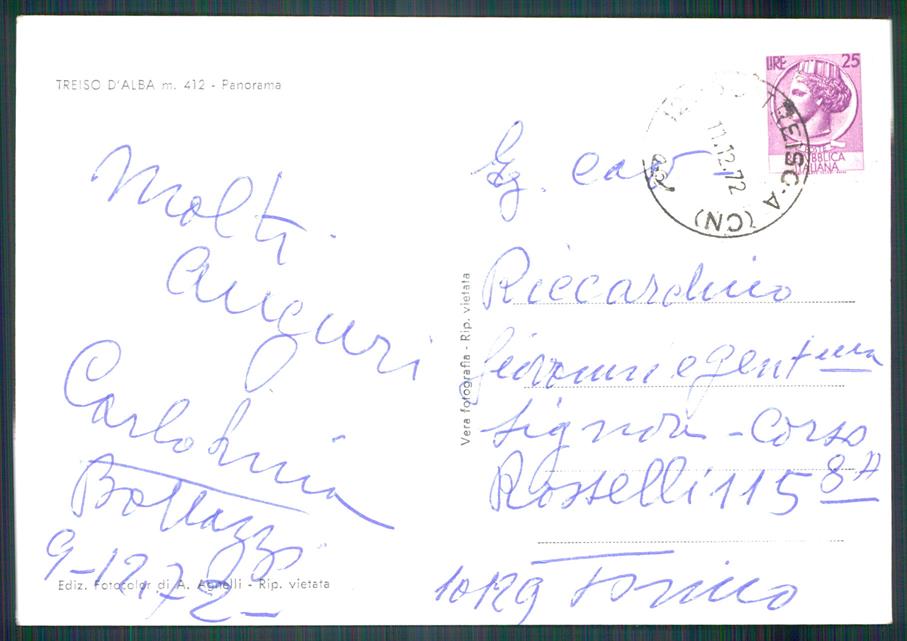 TREISO D'ALBA m. 412 - Panorama
Molti
Auguri
Carlotina
Bottazzi
9-12-72
Ediz. Fotocolor di A. Agnelli - Rip. vietata
Vera fotografia - Rip. vietata
LIRE 25
REPUBBLICA
ITALIANA
11.12.72
(CN)
cav
Riccardino
Giovanni e gent.ma
Signora - Corso
Rosselli 115 8A
10129 Torino